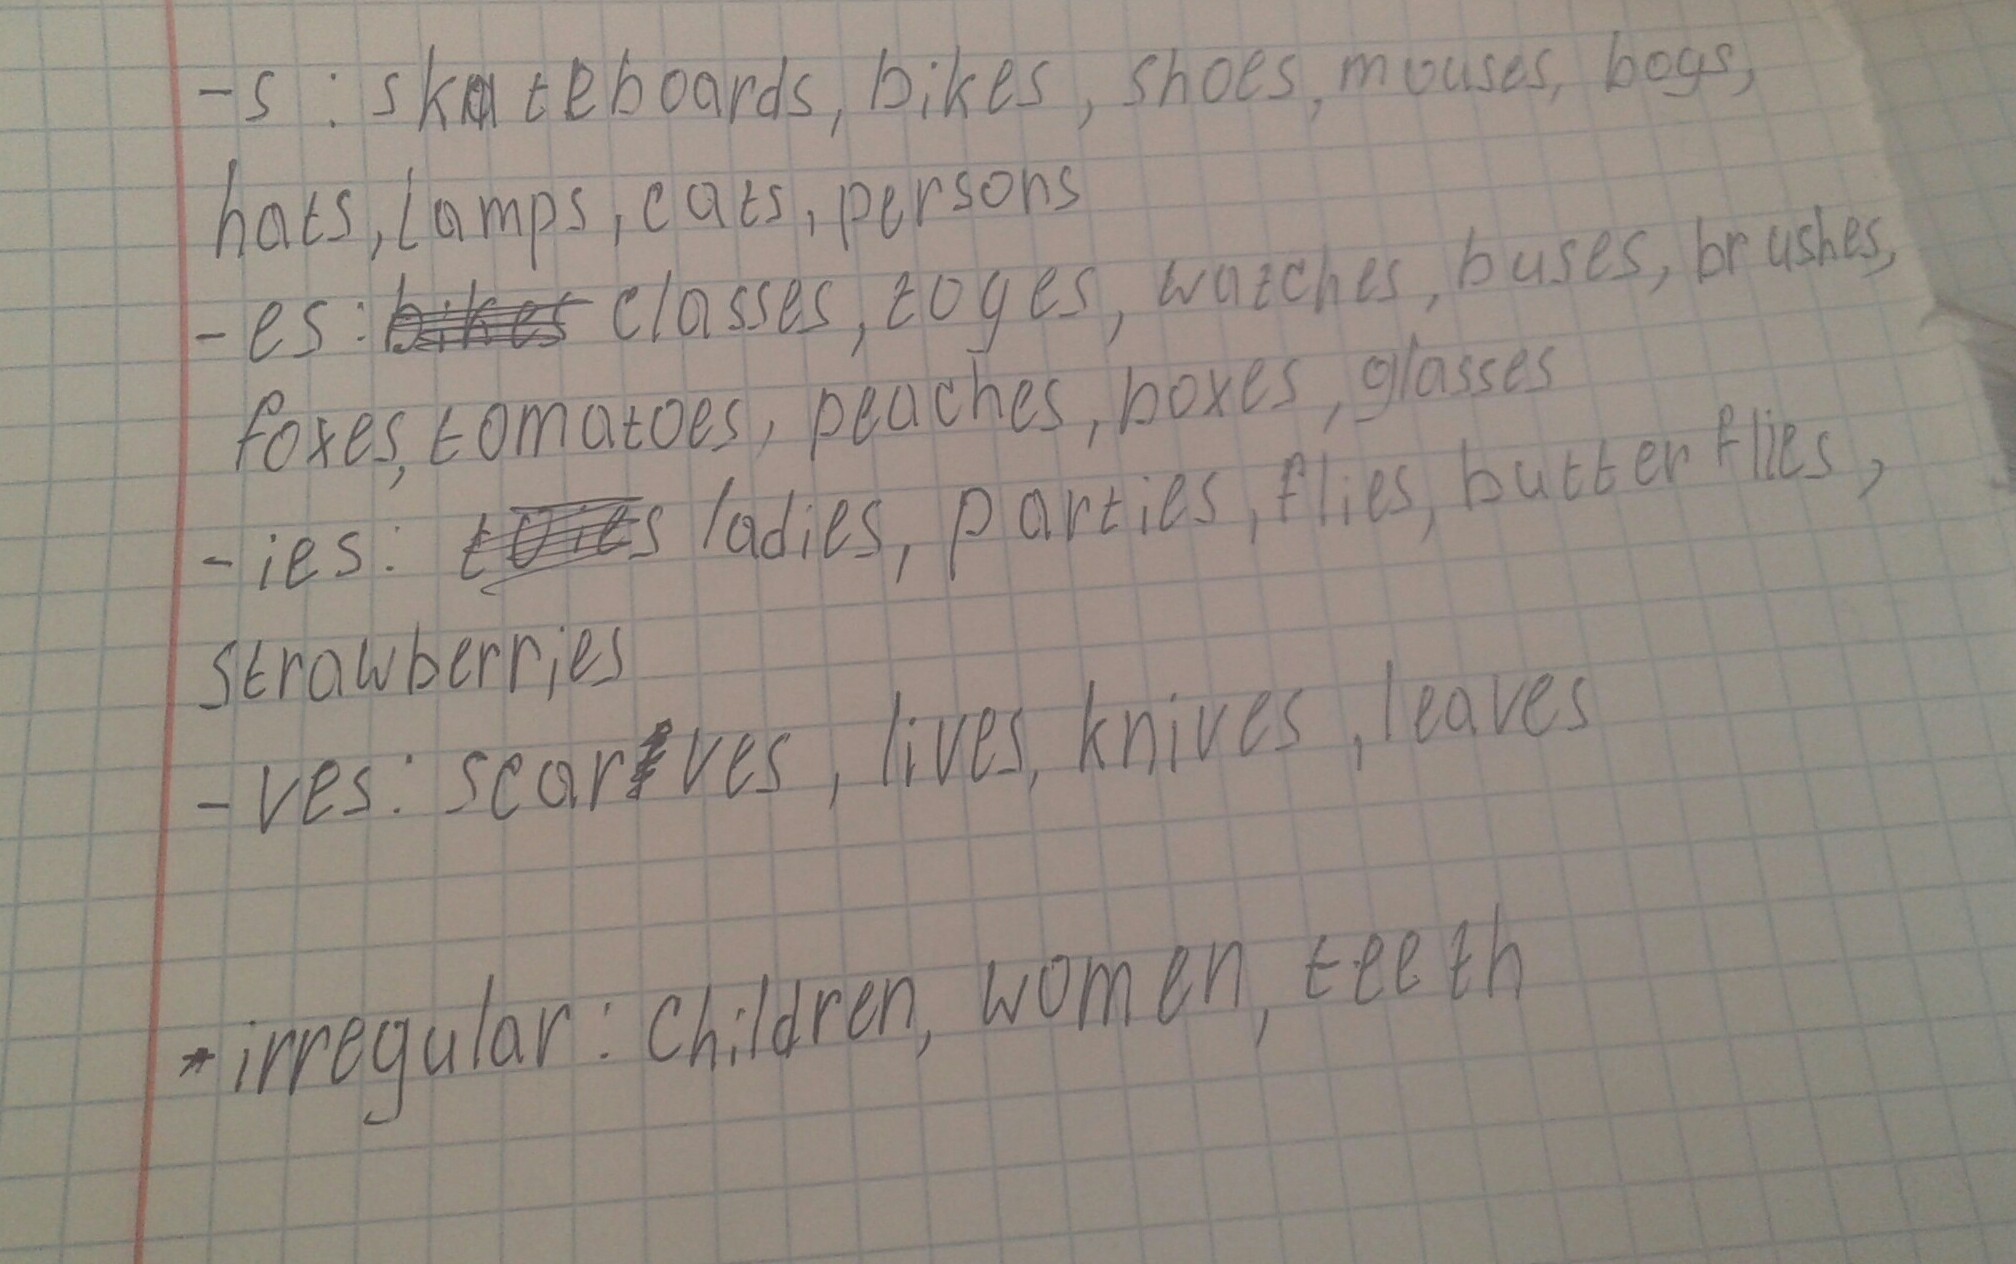 -s : skateboards, bikes, shoes, mouses, boys,
hats, lamps, cats, persons
-es: bikes classes, toyes, watches, buses, brushes,
foxes, tomatoes, peaches, boxes, glasses
-ies: toies ladies, parties, flies, butterflies,
strawberries
-ves: scarves, lives, knives, leaves
*irregular: children, women, teeth